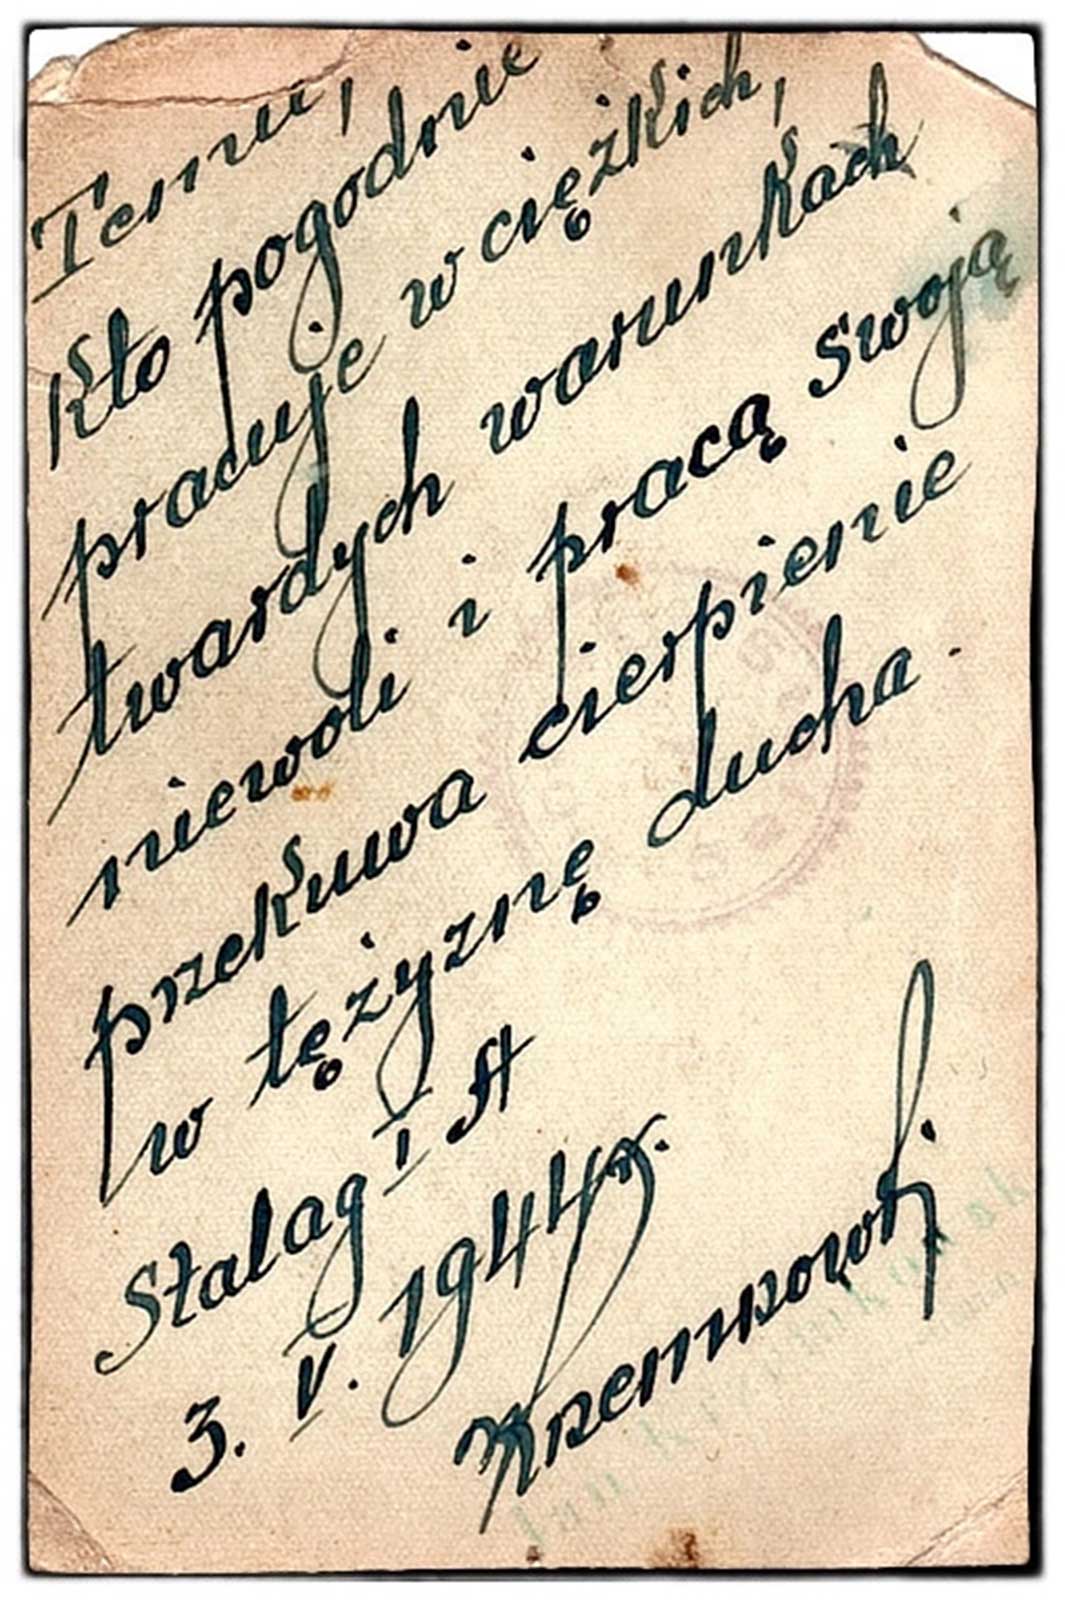 Temu,
Kto pogodnie
pracuje w ciężkich,
twardych warunkach
niewoli i pracą swoją
przekuwa cierpienie
w tężyznę ducha.
Stalag I A
3. V. 1944 r.